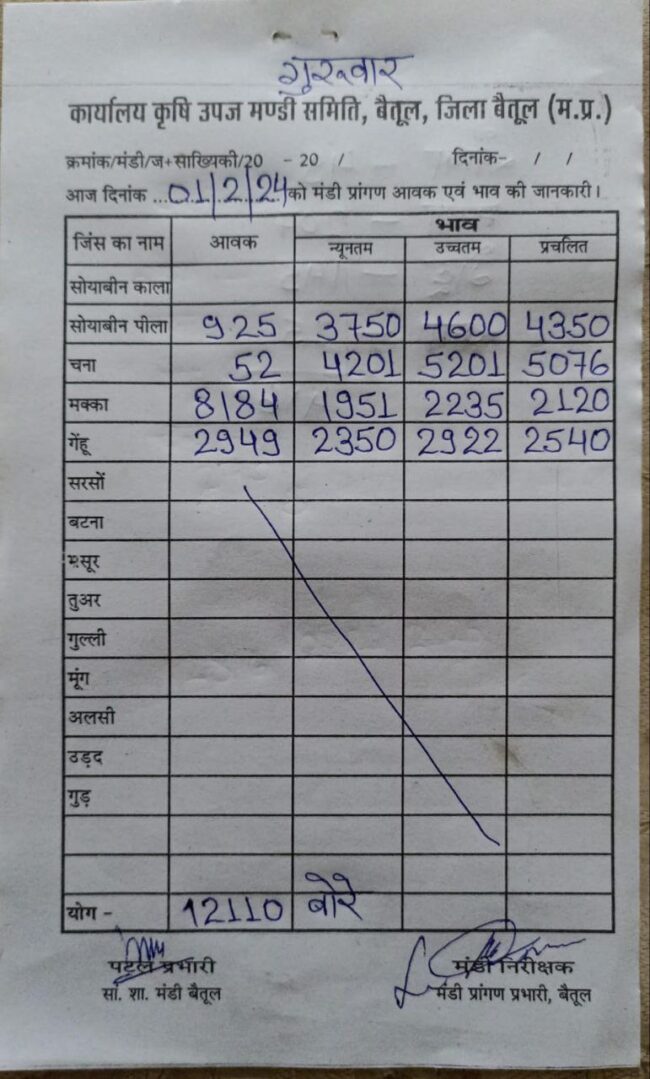 गुरूवार
कार्यालय कृषि उपज मण्डी समिति, बैतूल, जिला बैतूल (म.प्र.)
क्रमांक/मंडी/ज+साख्यिकी/20 - 20 / दिनांक- / /
आज दिनांक ...01/2/24 को मंडी प्रांगण आवक एवं भाव की जानकारी।
जिंस का नाम आवक भाव
न्यूनतम उच्चतम प्रचलित
सोयाबीन काला
सोयाबीन पीला 925 3750 4600 4350
चना 52 4201 5201 5076
मक्का 8184 1951 2235 2120
गेंहू 2949 2350 2922 2540
सरसों
बटना
मसूर
तुअर
गुल्ली
मूंग
अलसी
उड़द
गुड़
योग - 12110 बोरे
पटल प्रभारी मंडी निरीक्षक
सां. शा. मंडी बैतूल मंडी प्रांगण प्रभारी, बैतूल